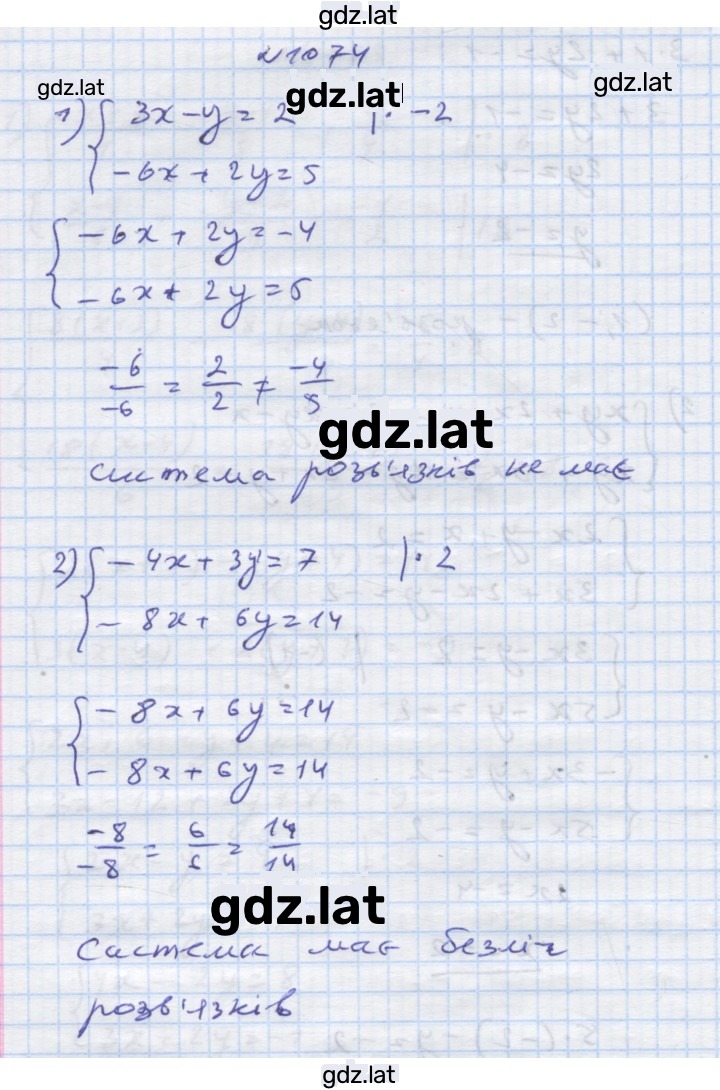 gdz.lat
№1074
gdz.lat gdz.lat gdz.lat
1) { 3x-y=2 |· -2
-6x+2y=5
{ -6x+2y=-4
-6x+2y=5
-6/-6 = 2/2 ≠ -4/5
gdz.lat
система розв'язків не має
2) { -4x+3y=7 |· 2
-8x+6y=14
{ -8x+6y=14
-8x+6y=14
-8/-8 = 6/6 = 14/14
gdz.lat
Система має безліч
розв'язків
gdz.lat